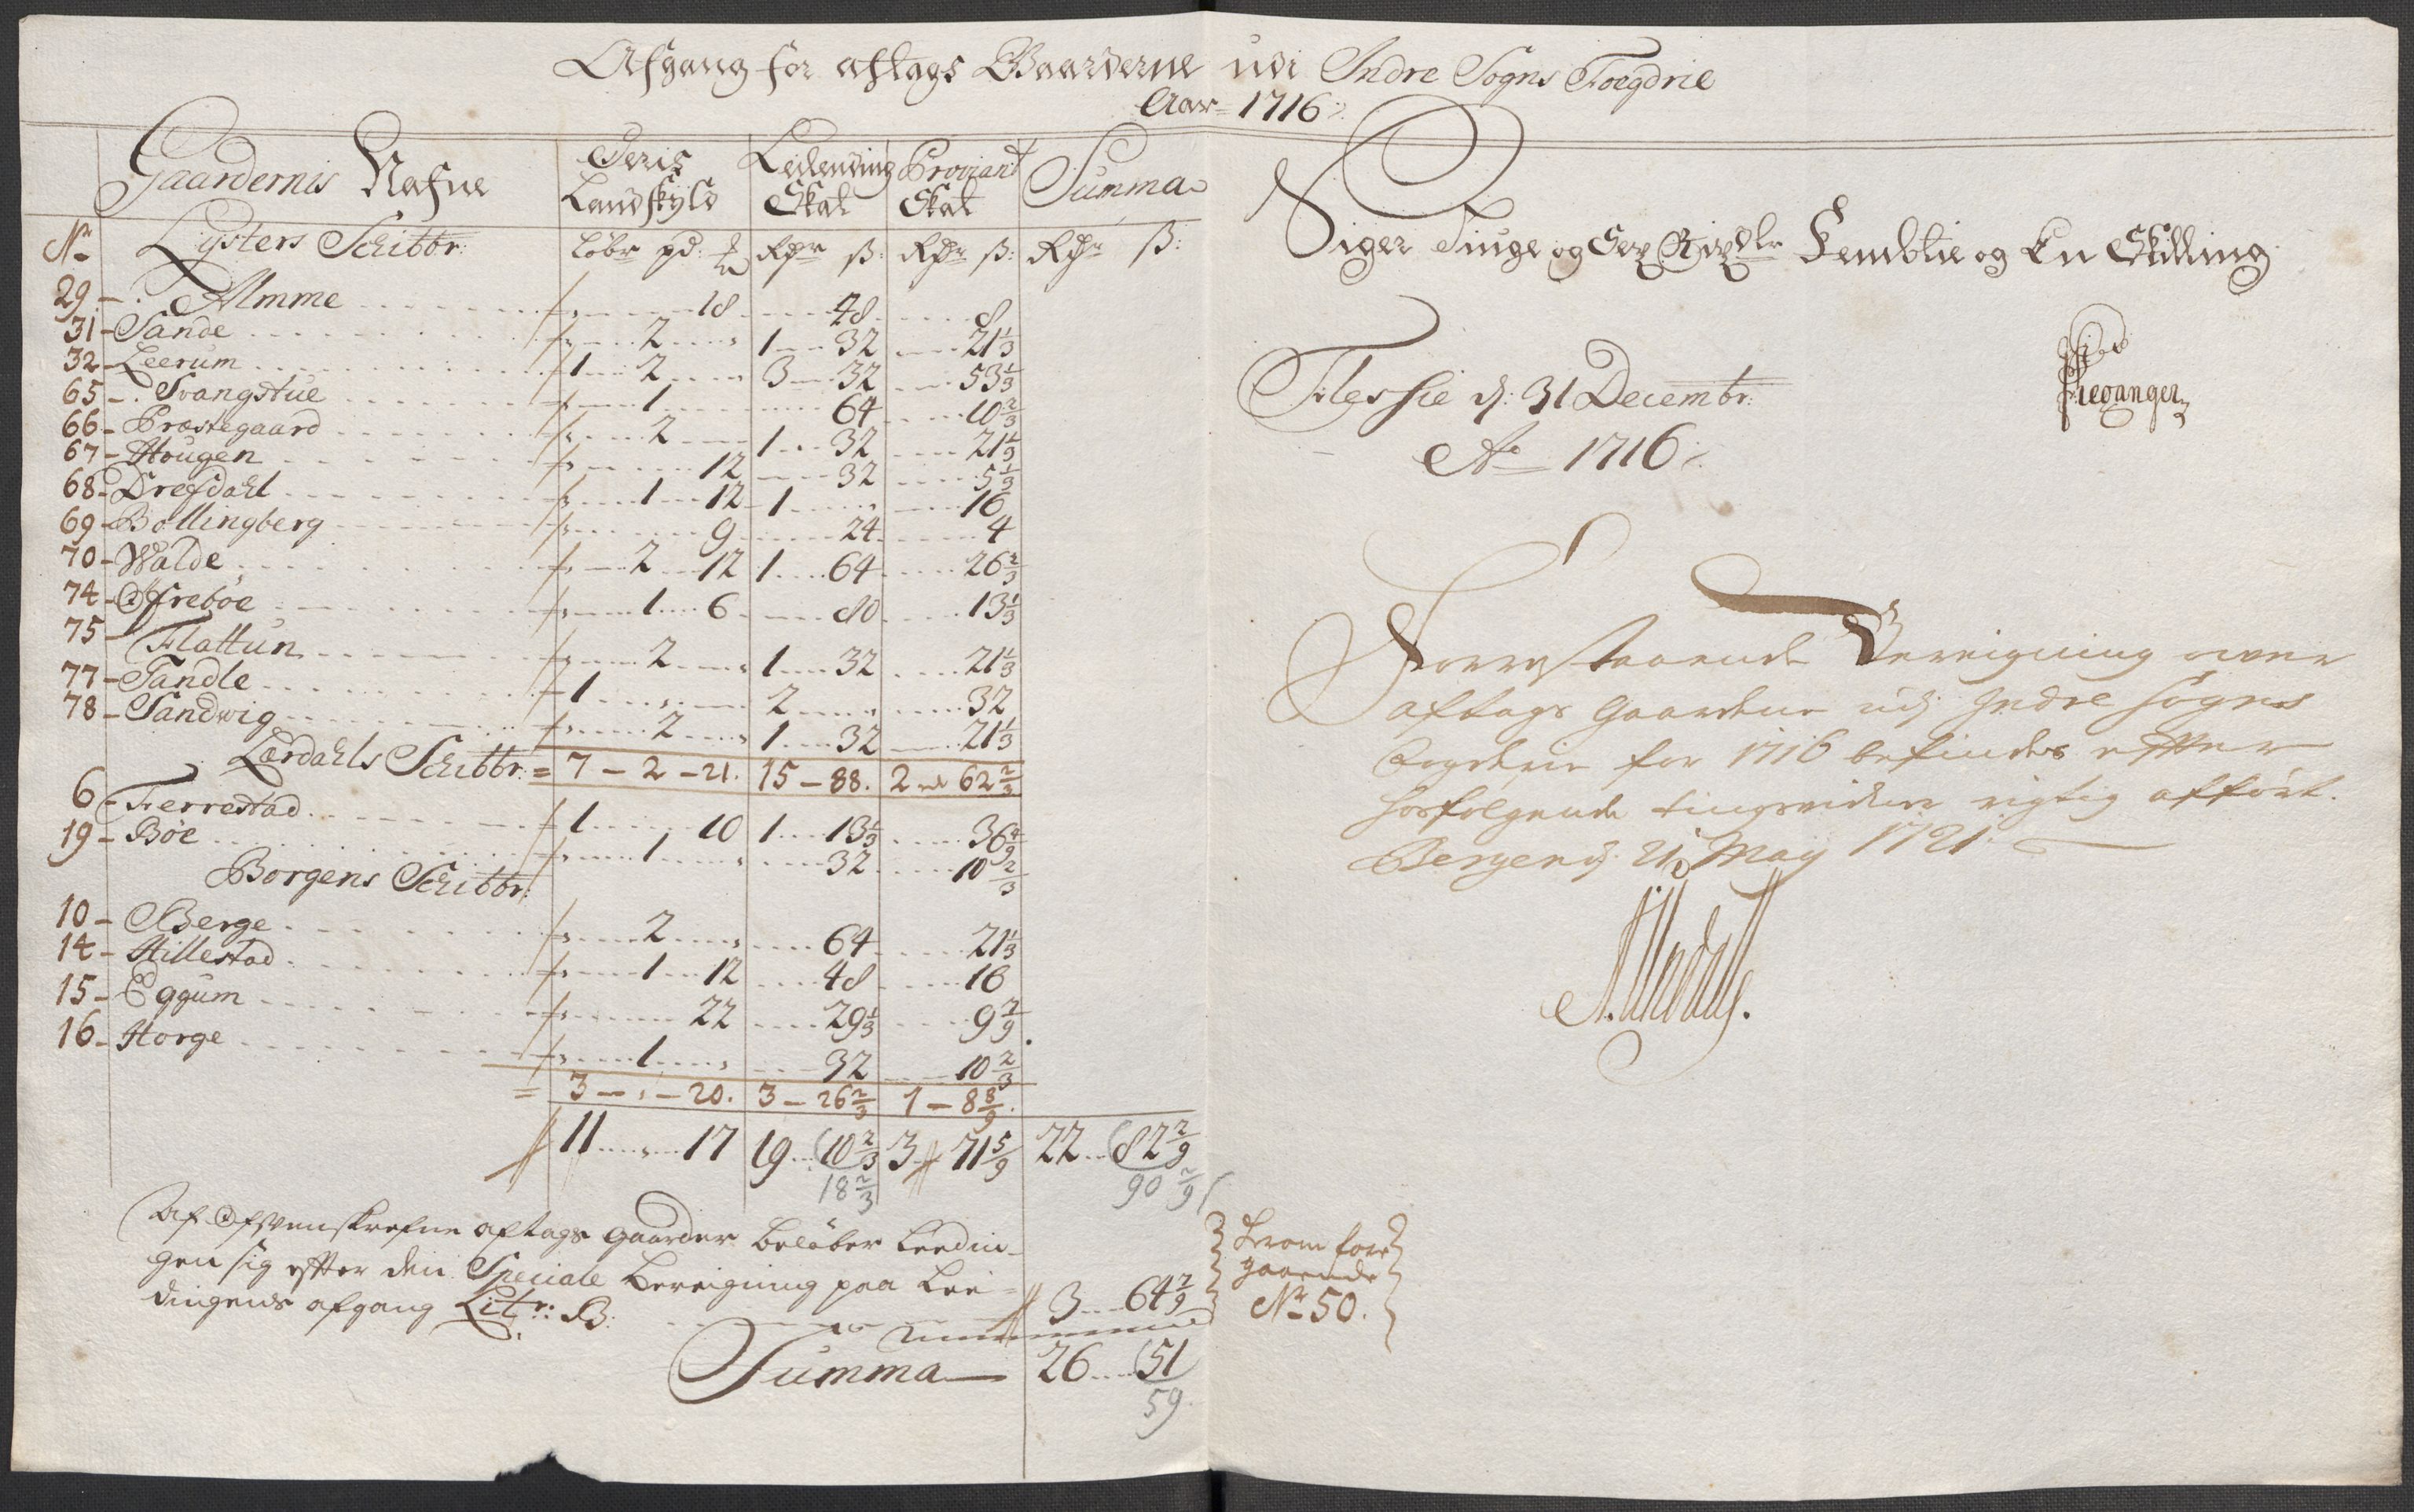 Afgang for aftags Gaarderne udi Indre Sogns Foegdrie
Aar 1716
Gaardernis Nafne | Deris Landskyld | Leilending Skat | Proviant Skat | Summa
Nr Lysters Schibbr: | løbr pd: | Rdr ß: | Rdr ß: | Rdr ß:
29 - Almme 18 | 48 | 8
31 - Sande 2 | 1 32 | 21 1/3
32 - Leerum 1 2 | 3 32 | 53 1/3
65 - Svangstue 1 | 64 | 10 2/3
66 - Præstegaard 2 | 1 32 | 21 1/3
67 - Hougen 12 | 32 | 5 1/3
68 - Drefdahl 1 12 | 1 | 16
69 - Bollingberg 9 | 24 | 4
70 - Walde 2 12 | 1 64 | 26 2/3
74 - Ofrebøe 1 6 | 80 | 13 1/3
75 - Flattun 2 | 1 32 | 21 1/3
77 - Tandle 1 | 2 | 32
78 - Sandwig 2 | 1 32 | 21 1/3
Lærdahls Schibbr: = 7 - 2 - 21. | 15 - 88. | 2 - 62 2/3
6 - Ferrestad 1 10 | 1 13 1/3 | 36 4/9
19 - Bøe 1 | 32 | 10 2/3
Borgens Schibbr:
10 - Berge 2 | 64 | 21 1/3
14 - Hillestad 1 12 | 48 | 16
15 - Eggum 22 | 29 1/3 | 9 7/9
16 - Horge 1 | 32 | 10 2/3
= 3 - , - 20. | 3 - 26 2/3 | 1 - 8 8/9.
11 17 | 19 10 2/3 | 3 71 5/9 | 22 82 2/9
18 2/3 | 90 2/9
Af Ofvenskrefne aftags gaarder beløber Leedin-
gen sig efter den Speciale Bereigning paa Lee-
dingens afgang Litr: B: 3 64 7/9
Summa 26 51
59
gaaende
No 50.
Siger Tiuge og Sex Rixdlr Fembtie og En Skilling
Flessie d: 31 Decembr:
Ao 1716
Forrestaaende Bereigning over
aftags gaardene udj Indre Sogns
Fogderie for 1716 befindes efter
hosfølgende tingsvidner rigtig afført.
Bergen d: 21 May 1721.